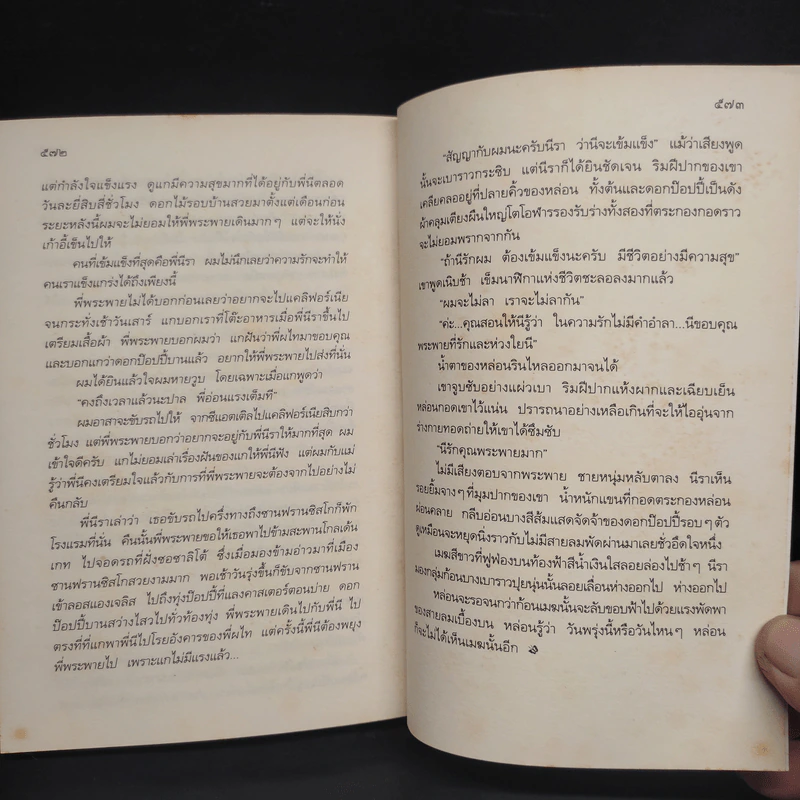 ๕๗๒
แต่กำลังใจแข็งแรง ดูแกมีความสุขมากที่ได้อยู่กับพี่นีตลอด
วันละยี่สิบสี่ชั่วโมง ดอกไม้รอบบ้านสวยมาตั้งแต่เดือนก่อน
ระยะหลังนี้ผมจะไม่ยอมให้พี่พระพายเดินมากๆ แต่จะให้นั่ง
เก้าอี้เข็นไปให้
คนที่เข้มแข็งที่สุดคือพี่นีรา ผมไม่นึกเลยว่าความรักจะทำให้
คนเราแข็งแกร่งได้ถึงเพียงนี้
พี่พระพายไม่ได้บอกก่อนเลยว่าอยากจะไปแคลิฟอร์เนีย
จนกระทั่งเช้าวันเสาร์ แกบอกเราที่โต๊ะอาหารเมื่อพี่นีราขึ้นไป
เตรียมเสื้อผ้า พี่พระพายบอกผมว่า แกฝันว่าพี่ผไทมาขอบคุณ
และบอกแกว่าดอกป๊อปปี้บานแล้ว อยากให้พี่พระพายไปส่งที่นั่น
ผมได้ยินแล้วใจผมหายวูบ โดยเฉพาะเมื่อแกพูดว่า
“คงถึงเวลาแล้วนะปาล พี่อ่อนแรงเต็มที”
ผมอาสาจะขับรถไปให้ จากซีแอตเติลไปแคลิฟอร์เนียสิบกว่า
ชั่วโมง แต่พี่พระพายบอกว่าอยากจะอยู่กับพี่นีราให้มากที่สุด ผม
เข้าใจดีครับ แกไม่ยอมเล่าเรื่องฝันของแกให้พี่นีฟัง แต่ผมกับแม่
รู้ว่าพี่นีคงเตรียมใจแล้วกับการที่พี่พระพายจะต้องจากไปอย่างไม่
คืนกลับ
พี่นีราเล่าว่า เธอขับรถไปครึ่งทางถึงซานฟรานซิสโกก็พัก
โรงแรมที่นั่น คืนนั้นพี่พระพายขอให้เธอพาไปข้ามสะพานโกลเด้น
เกท ไปจอดรถที่ฝั่งซอซาลิโต้ ซึ่งเมื่อมองข้ามอ่าวมาที่เมือง
ซานฟรานซิสโกสวยงามมาก พอเช้าวันรุ่งขึ้นก็ขับจากซานฟราน
เข้าลอสแองเจลิส ไปถึงทุ่งป๊อปปี้ที่แลงคาสเตอร์ตอนบ่าย ดอก
ป๊อปปี้บานสว่างไสวไปทั่วท้องทุ่ง พี่พระพายเดินไปกับพี่นี ไป
ตรงที่ที่แกพาพี่นีไปโรยอังคารของพี่ผไท แต่ครั้งนี้พี่นีต้องพยุง
พี่พระพายไป เพราะแกไม่มีแรงแล้ว...
๕๗๓
“สัญญากับผมนะครับนีรา ว่านีจะเข้มแข็ง” แม้ว่าเสียงพูด
นั้นจะเบาราวกระซิบ แต่นีราก็ได้ยินชัดเจน ริมฝีปากของเขา
เคลียคลออยู่ที่ปลายคิ้วของหล่อน ทั้งต้นและดอกป๊อปปี้เป็นดัง
ผ้าคลุมเตียงผืนใหญ่โตโอฬารรองรับร่างทั้งสองที่ตระกองกอดราว
จะไม่ยอมพรากจากกัน
“ถ้านีรักผม ต้องเข้มแข็งนะครับ มีชีวิตอย่างมีความสุข”
เขาพูดเนิบช้า เข็มนาฬิกาแห่งชีวิตชะลอลงมากแล้ว
“ผมจะไม่ลา เราจะไม่ลากัน”
“ค่ะ...คุณสอนให้นีรู้ว่า ในความรักไม่มีคำอำลา...นีขอบคุณ
พระพายที่รักและห่วงใยนี”
น้ำตาของหล่อนรินไหลออกมาจนได้
เขาจูบซับอย่างแผ่วเบา ริมฝีปากแห้งผากและเฉียบเย็น
หล่อนกอดเขาไว้แน่น ปรารถนาอย่างเหลือเกินที่จะให้ไออุ่นจาก
ร่างกายทอดถ่ายให้เขาได้ซึมซับ
“นีรักคุณพระพายมาก”
ไม่มีเสียงตอบจากพระพาย ชายหนุ่มหลับตาลง นีราเห็น
รอยยิ้มจางๆ ที่มุมปากของเขา น้ำหนักแขนที่กอดตระกองหล่อน
ผ่อนคลาย กลีบอ่อนบางสีส้มแสดจัดจ้าของดอกป๊อปปี้รอบๆ ตัว
ดูเหมือนจะหยุดนิ่งราวกับไม่มีสายลมพัดผ่านมาเลยชั่วอึดใจหนึ่ง
เมฆสีขาวที่ฟูฟ่องบนท้องฟ้าสีน้ำเงินใสลอยล่องไปช้าๆ นีรา
มองกลุ่มก้อนบางเบาราวปุยนุ่นนั้นลอยเลื่อนห่างออกไป ห่างออกไป
หล่อนจะรอจนกว่าก้อนเมฆนั้นจะลับขอบฟ้าไปด้วยแรงพัดพา
ของสายลมเบื้องบน หล่อนรู้ว่า วันพรุ่งนี้หรือวันไหนๆ หล่อน
ก็จะไม่ได้เห็นเมฆนั้นอีก